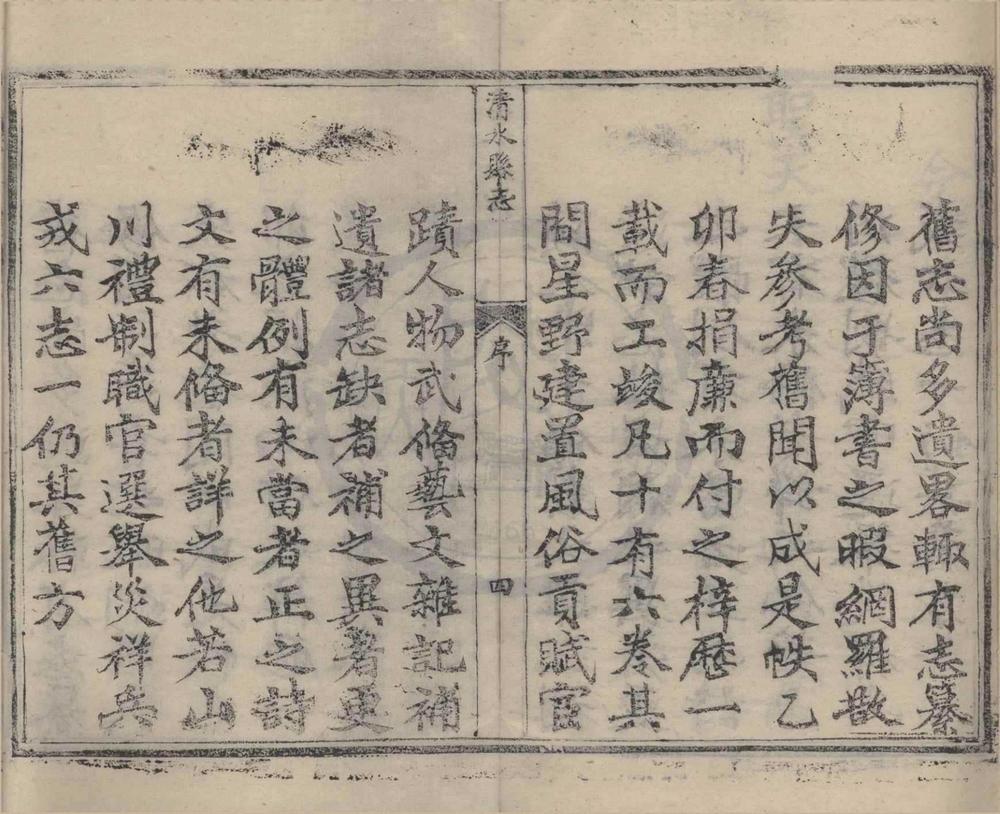 舊志尚多遺畧輙有志纂
修因于簿書之暇網羅散
失參考舊聞以成是帙乙
卯春捐廉而付之梓歷一
載而工竣凡十有六卷其
間星野建置風俗貢賦宦
清水縣志
序
四
蹟人物武俻藝文雜記補
遺諸志缺者補之異者更
之體例有未當者正之詩
文有未俻者詳之他若山
川禮制職官選舉災祥兵
戎六志一仍其舊方